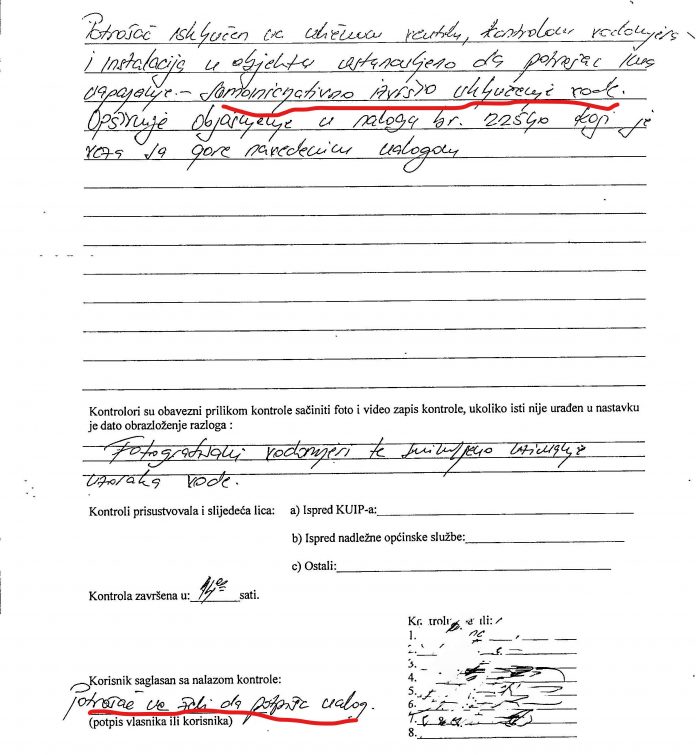 Potrošač isključen na uličnom ventilu, kontrolom vodomjera
i instalacija u objektu ustanovljeno da potrošač ima
napajanje.- Samoinicijativno izvršio uključenje vode.
Opširnije objašnjenje u nalogu br. 22540 koji je
veza sa gore navedenim nalogom
Kontrolori su obavezni prilikom kontrole sačiniti foto i video zapis kontrole, ukoliko isti nije urađen u nastavku
je dato obrazloženje razloga :
Fotografisani vodomjeri te snimljeno uzimanje
uzoraka vode.
Kontroli prisustvovala i slijedeća lica: a) Ispred KUIP-a:
b) Ispred nadležne općinske službe:
c) Ostali:
Kontrola završena u: 14 00 sati.
1.
2.
3.
4.
5.
6.
7.
8.
Korisnik saglasan sa nalazom kontrole:
Potrošač ne želi da potpiše nalog.
(potpis vlasnika ili korisnika)